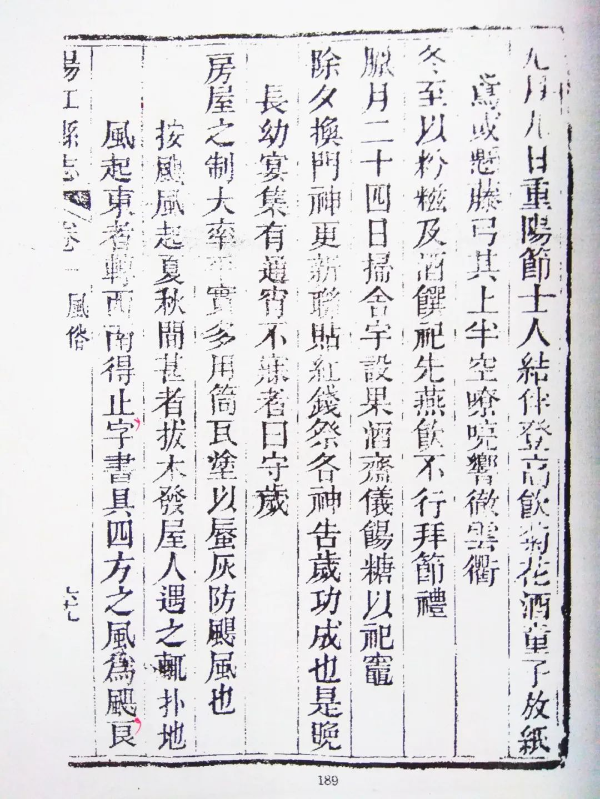 九月九日重陽節士人結伴登高飲菊花酒童子放紙
鳶或懸藤弓其上半空嘹喨響徹雲衢
冬至以粉糍及酒饌祀先燕飲不行拜節禮
臘月二十四日掃舍宇設果酒齋儀餳糖以祀竈
除夕換門神更新聯貼紅錢祭各神告歲功成也是晚
長幼宴集有通宵不寐者曰守歲
房屋之制大率平實多用筒瓦塗以蜃灰防颶風也
按颶風起夏秋間甚者拔木發屋人遇之輒扑地
風起東者轉西南得止字書具四方之風為颶艮
陽江縣志 卷一 風俗
189